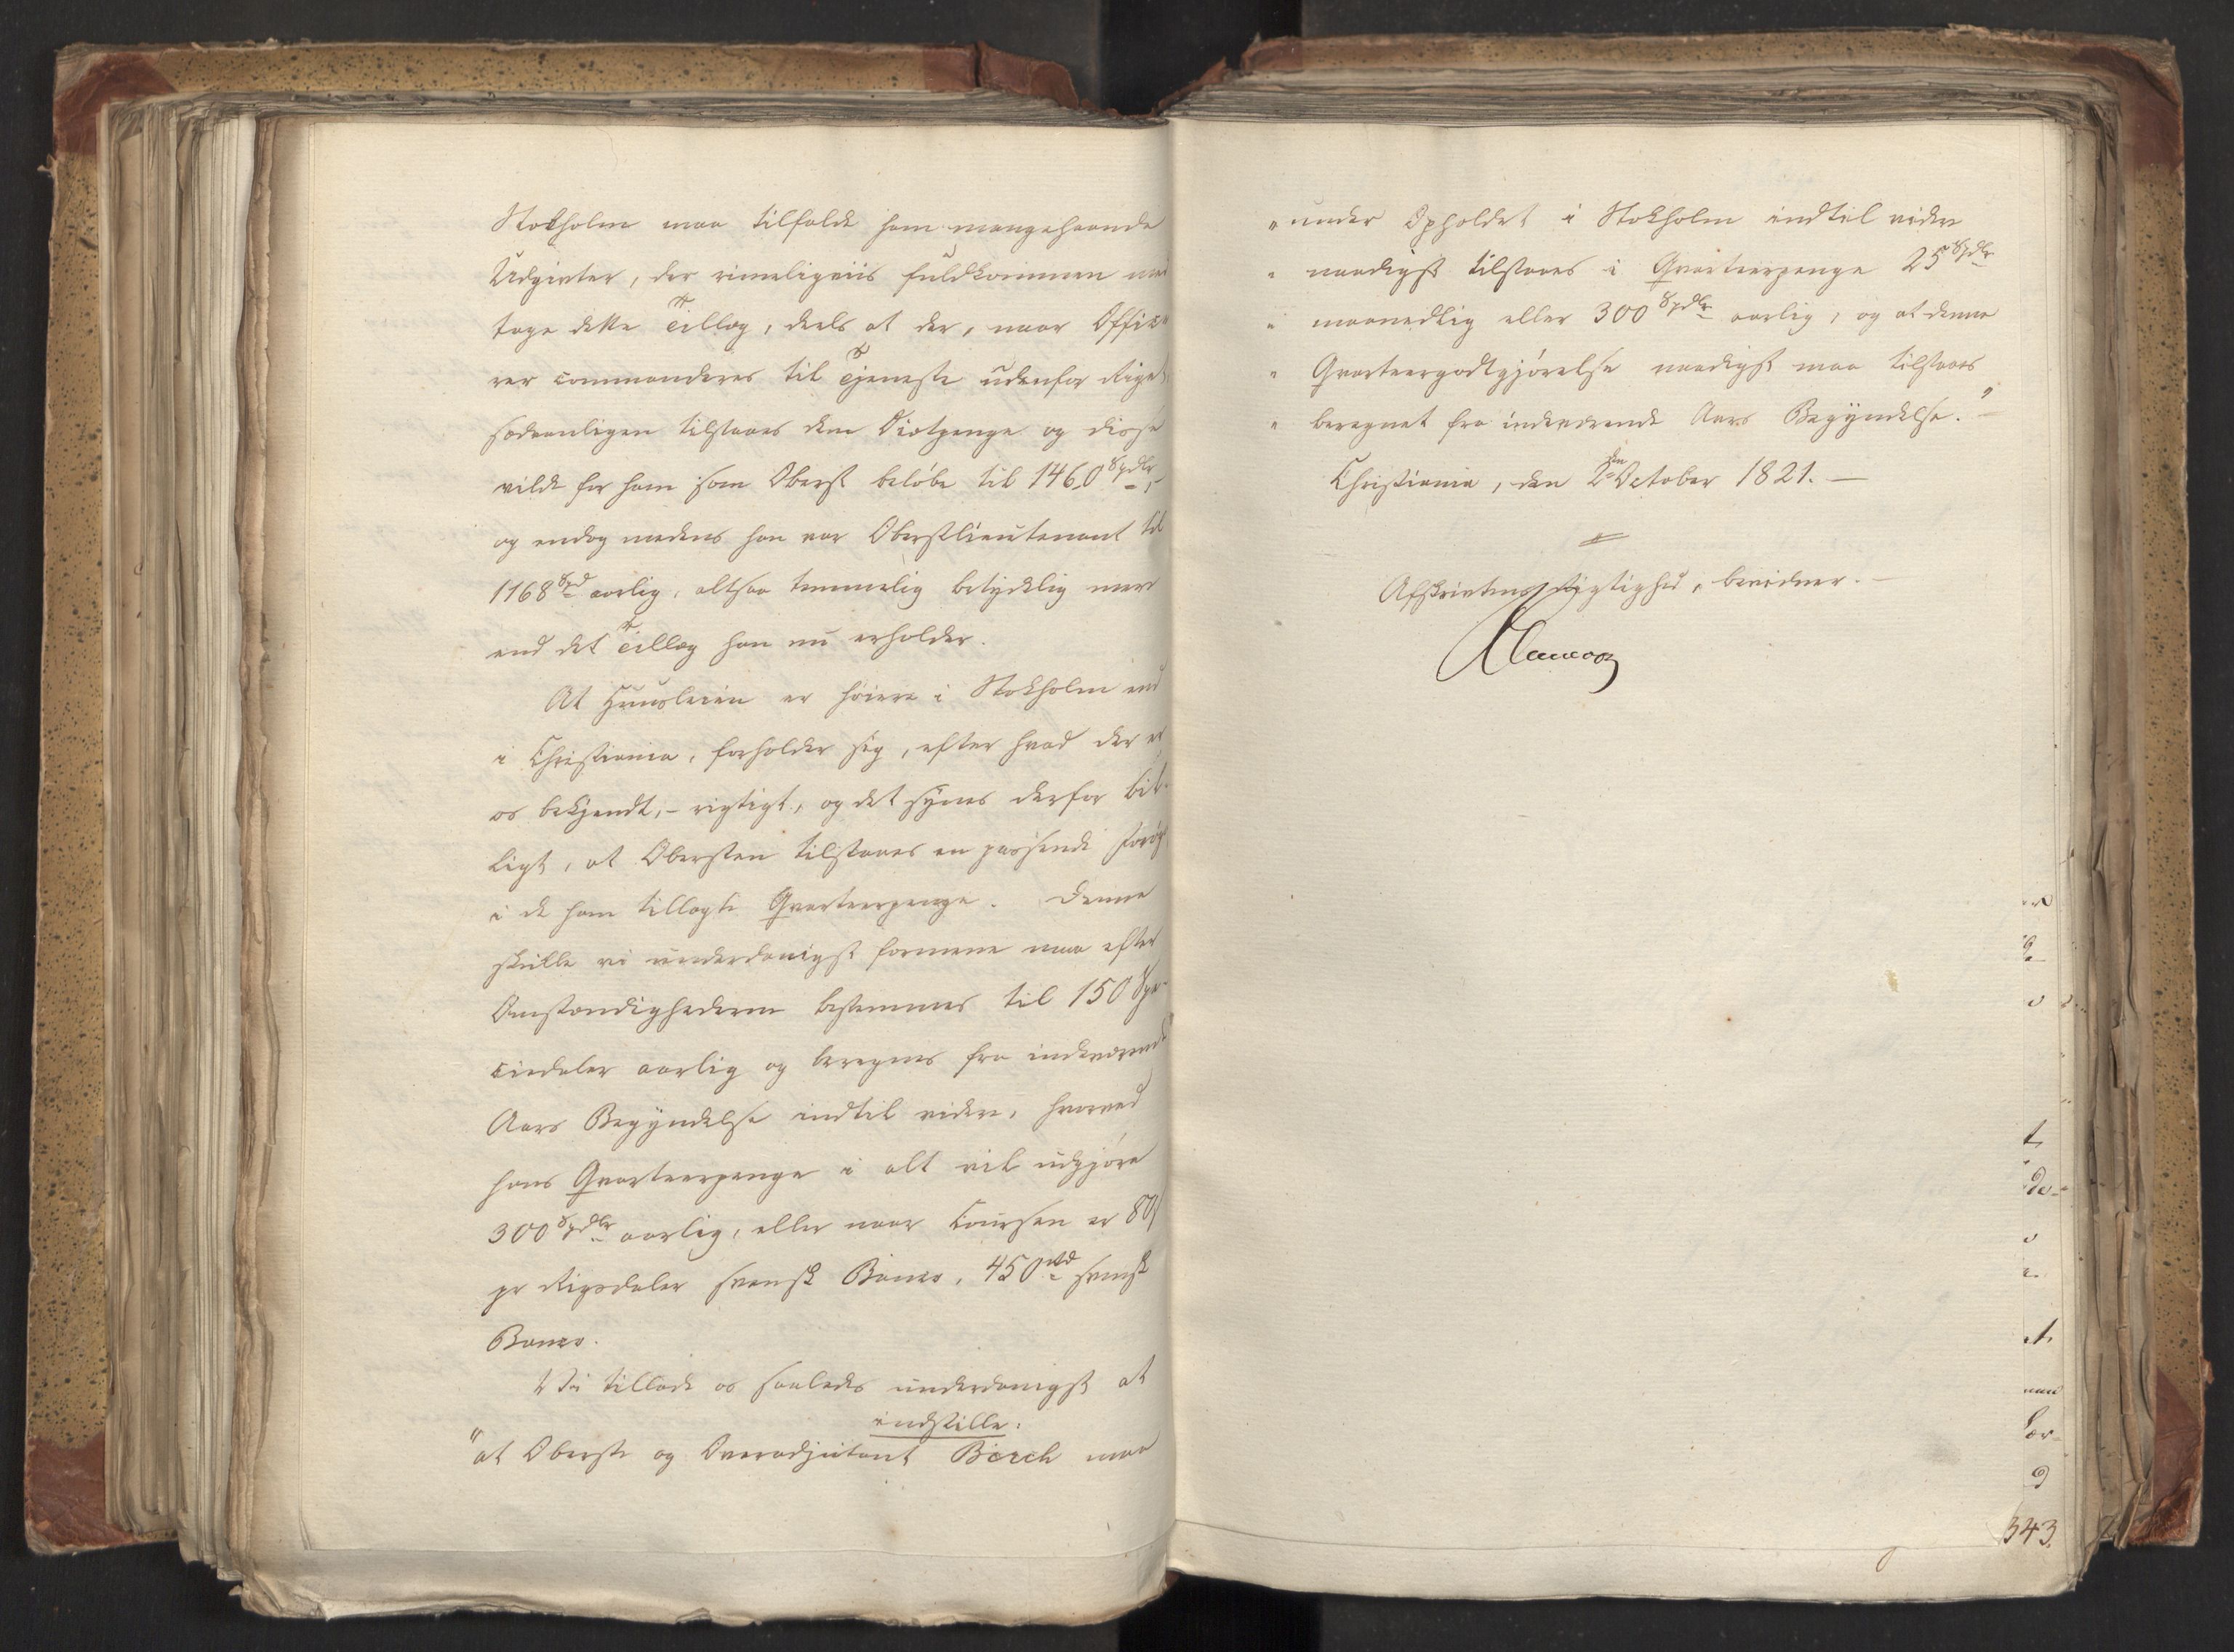 Stokholm maa tilfalde ham mangehaande
Udgivter, der rimeligviis fuldkommen med
tage dette Tillæg, deels at der, naar Office
rer commanderes til Tjeneste udenfor Riget,
sædvanligen tilstaaes dem Diætpenge og disse
vilde for ham som Oberst beløbe til 1460 Spdlr,
og endog medens han var Oberstlieutenant til
1168 Spd aarlig, altsaa temmelig betydelig mere
end det Tillæg han nu erholder.
At Huusleien er høiere i Stokholm end
i Christiania, forholder sig, efter hvad der er
os bekjendt, - rigtigt, og det synes derfor bil-
ligt, at Obersten tilstaaes en passende Forøg
i de ham tillagte Qvarteerpenge. Denne
skulle vi underdanigst formene maa efter
Omstændighederne bestemmes til 150 Spe-
ciedaler aarlig og beregnes fra indeværende
Aars Begyndelse indtil videre, hvorved
hans Qvarteerpenge i alt vil udgjøre
300 Spdlr aarlig, eller naar Coursen er 80
pr Rigsdaler svensk Banco, 450 Rd svensk
Banco.
Vi tillade os saaledes underdanigst at
indstille:
"at Oberst og Overadjutant Birch maa
"under Opholdet i Stokholm indtil videre
" naadigst tilstaaes i Qvarteerpenge 25 Spdlr
" maanedlig eller 300 Spdlr aarlig, og at denne
" Qvarteergodtgjørelse naadigst maa tilstaaes
" beregnet fra indeværende Aars Begyndelse." -
Christiania, den 2den October 1821. -
Afskrivtens Rigtighed, bevidner. -
343.